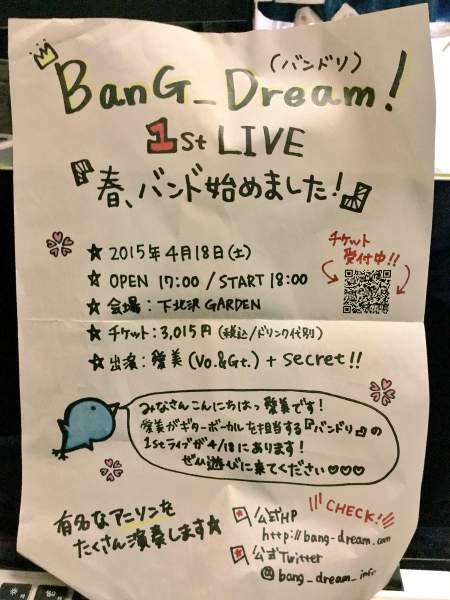 (バンドリ)
BanG_Dream!
1st LIVE
『春、バンド始めました!』
★ 2015年4月18日(土)
★ OPEN 17:00 / START 18:00
★ 会場:下北沢 GARDEN
★ チケット:3,015円(税込/ドリンク代別)
★ 出演:愛美(Vo.&Gt.) + secret!!
チケット
受付中!!
みなさんこんにちはっ 愛美です!
愛美がギターボーカルを担当する『バンドリ』の
1stライブが4/18にあります!
ぜひ遊びに来てください♡♡♡
有名なアニソンを
たくさん演奏します☆
CHECK!
公式HP
http://bang-dream.com
公式Twitter
@bang_dream_info